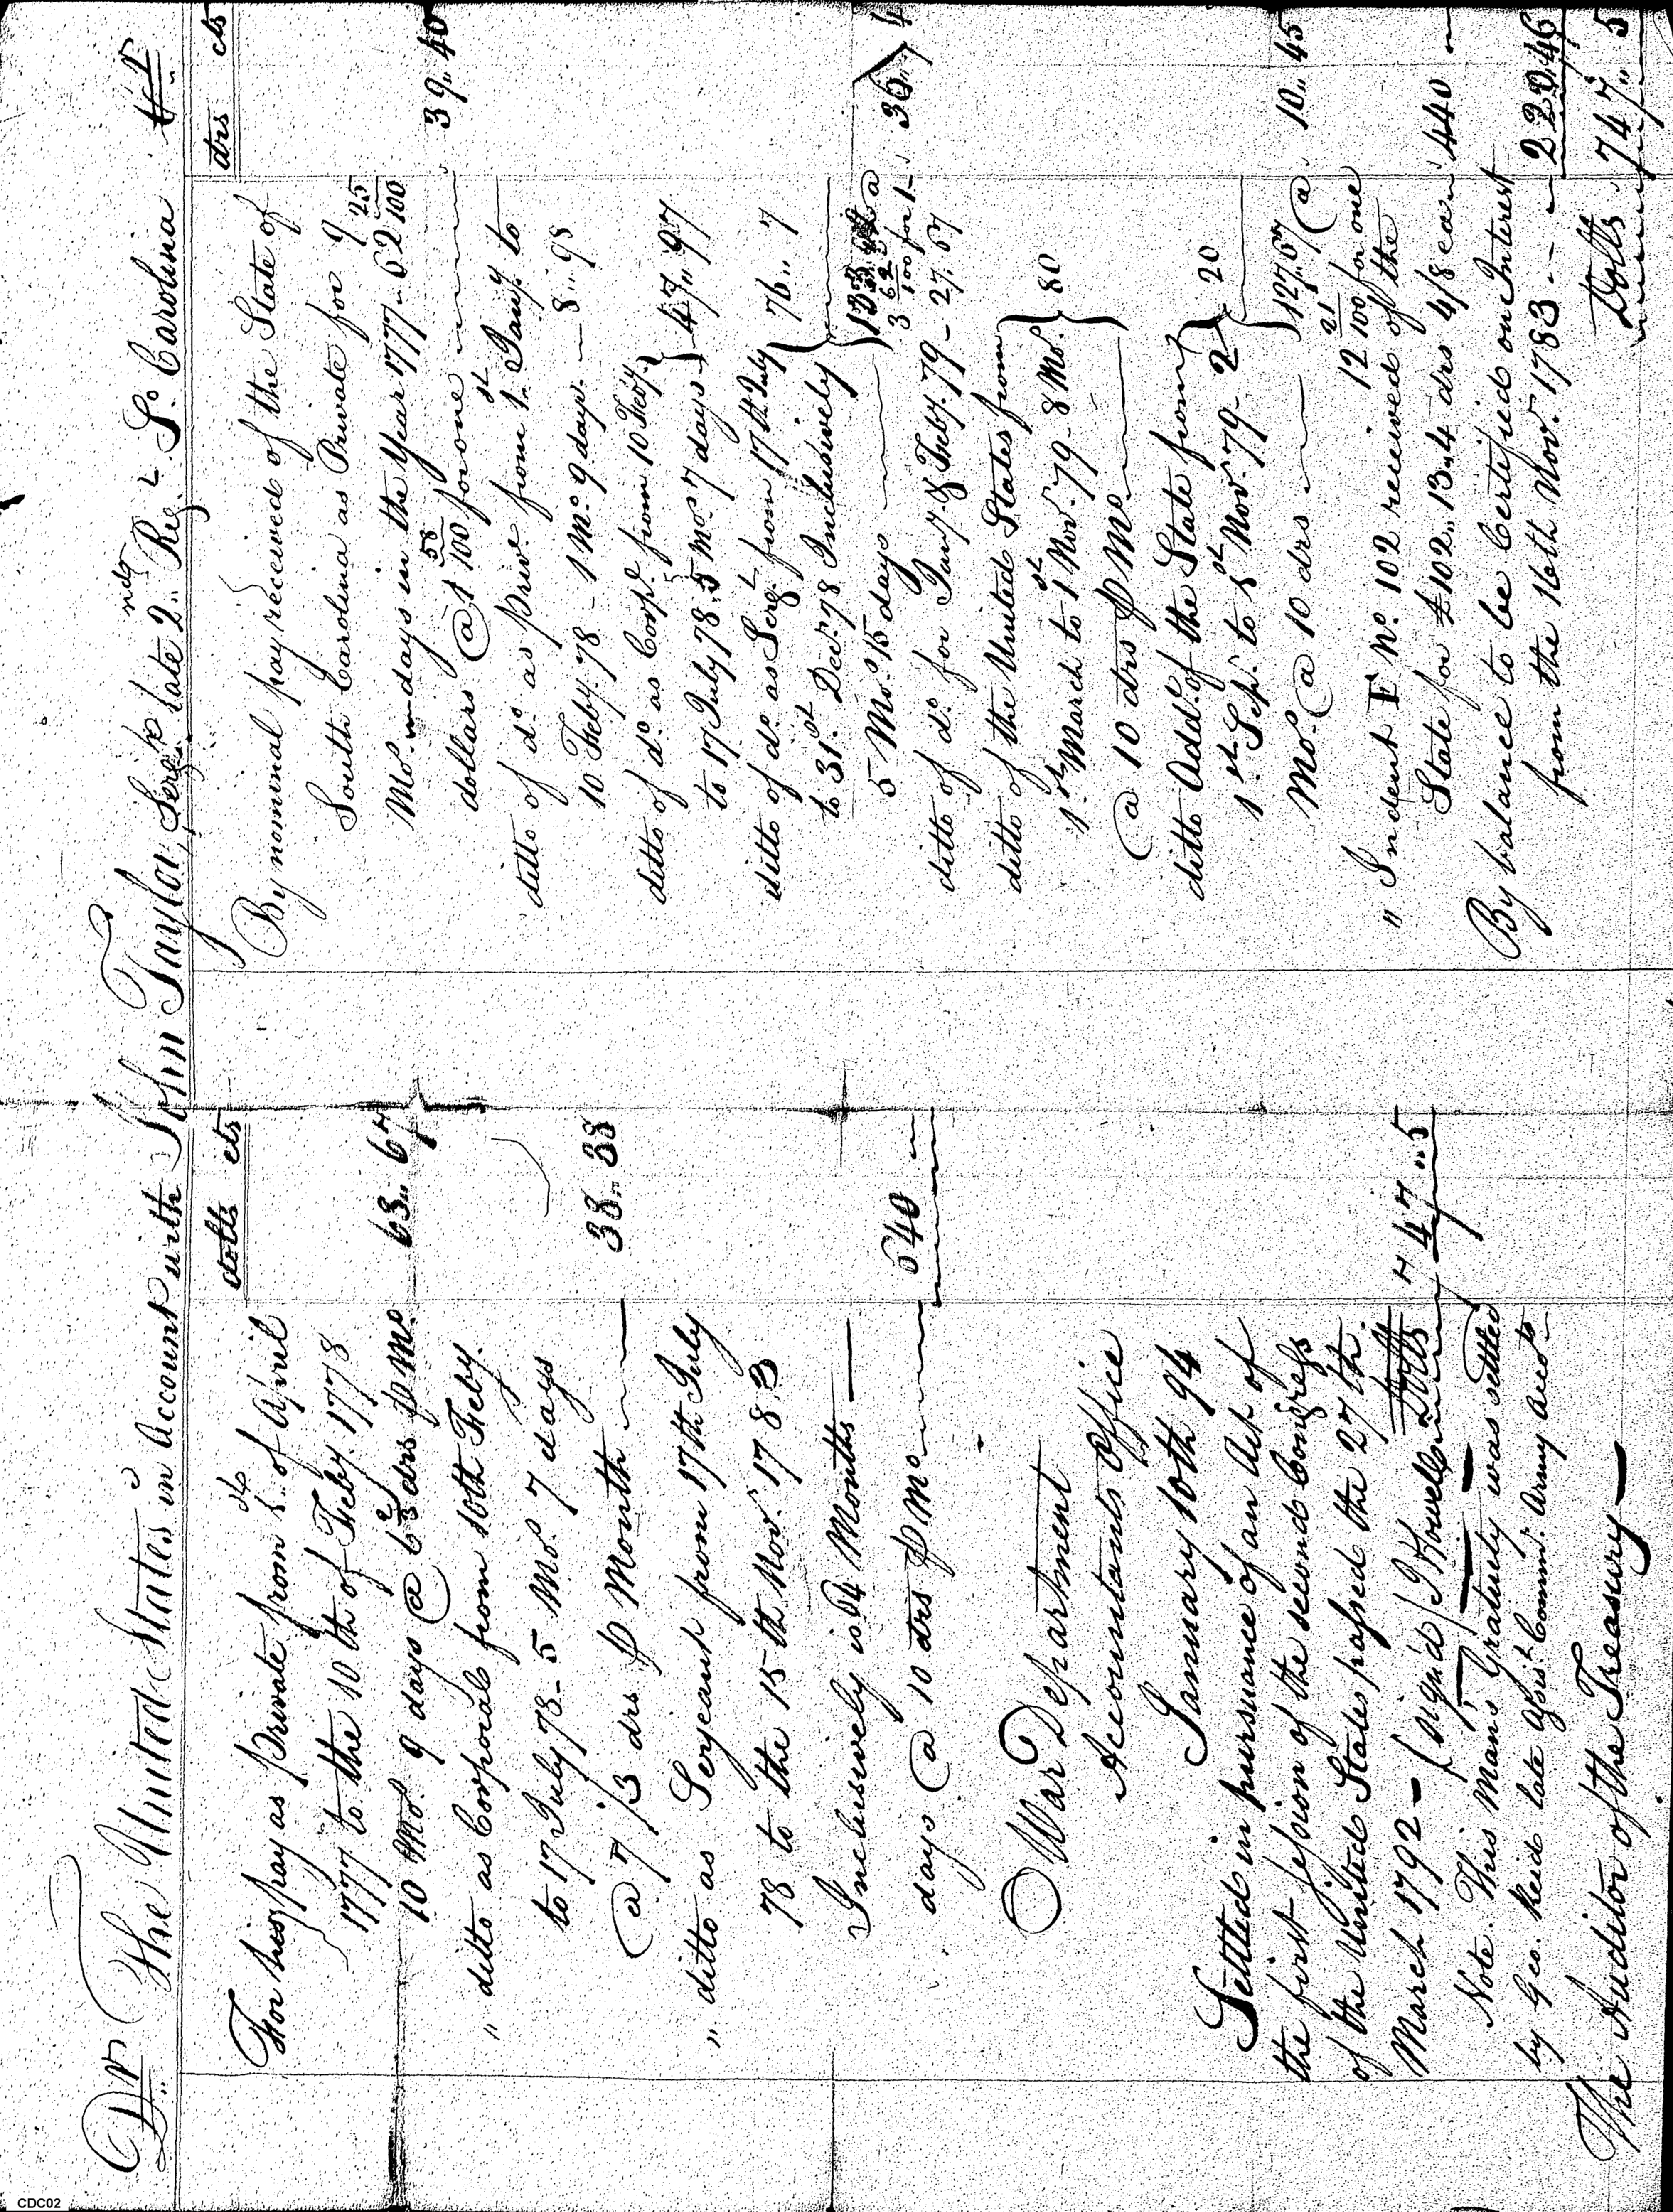 Dr The United States in Account with John Taylor, Serjt late 2nd Regt So Carolina Cr
dolls cts
For his pay as Private from 1st of April
1777 to the 10th of Feby. 1778
10 Mos. 9 days @ 6 2/3 drs p Mo. 63.. 67
" ditto as Corporal from 10th Feby.
to 17 July 78 - 5 Mos. 7 days
@ 7 1/3 drs p Month 38.. 38
" ditto as Serjeant from 17th July
78 to the 15th Nov. 1783
Inclusively is 64 Months
days @ 10 drs p Mo 640
War Department
Accountants Office
January 10th 94
Settled in pursuance of an Act of
the first session of the second Congress
of the United States passed the 27th.
March 1792 — (signd) J Howell Dolls 747..5
Note. This Mans Gratuity was settled
by Geo. Reid late Assist Commr. Army Accots
The Auditor of the Treasury —
drs cts
By nominal pay received of the State of
South Carolina as Private for 9
Mos. days in the Year 1777 - 62 25/100
dollars @ 1 58/100 for one 39.. 40
ditto of do. as Prive from 1st Jany. to
10 Feby. 78 - 1 Mo. 9 days. — 8.. 98
ditto of do. as Corpl. from 10 Feby.
to 17 July 78. 5 Mos. 7 days } 47.. 97
ditto of do. as Sergt. from 17th July
to 31st. Decr. 78 Inclusively } 76.. 7
5 Mos. 15 days } 133 a
3 62/100 for 1 - 36.. 74
ditto of do. for Jany. & Feby. 79 - 27. 67
ditto of the United States from
1st March to 1st Nov. 79 - 8 Mo. } 80
@ 10 drs p Mo
ditto Addl. of the State from
1st. Sept. to 1st Nov. 79 - 2 } 20
Mos. @ 10 drs } 127.. 67 @ 10.. 45
12 21/100 for one
" Indent F No. 102 received of the
State for £102.. 13.. 4 drs 4/8 ea 440
By balance to be Certified on Interest
from the 16th Nov. 1783 .. — 220.46
Dolls 747.. 5
CDC02